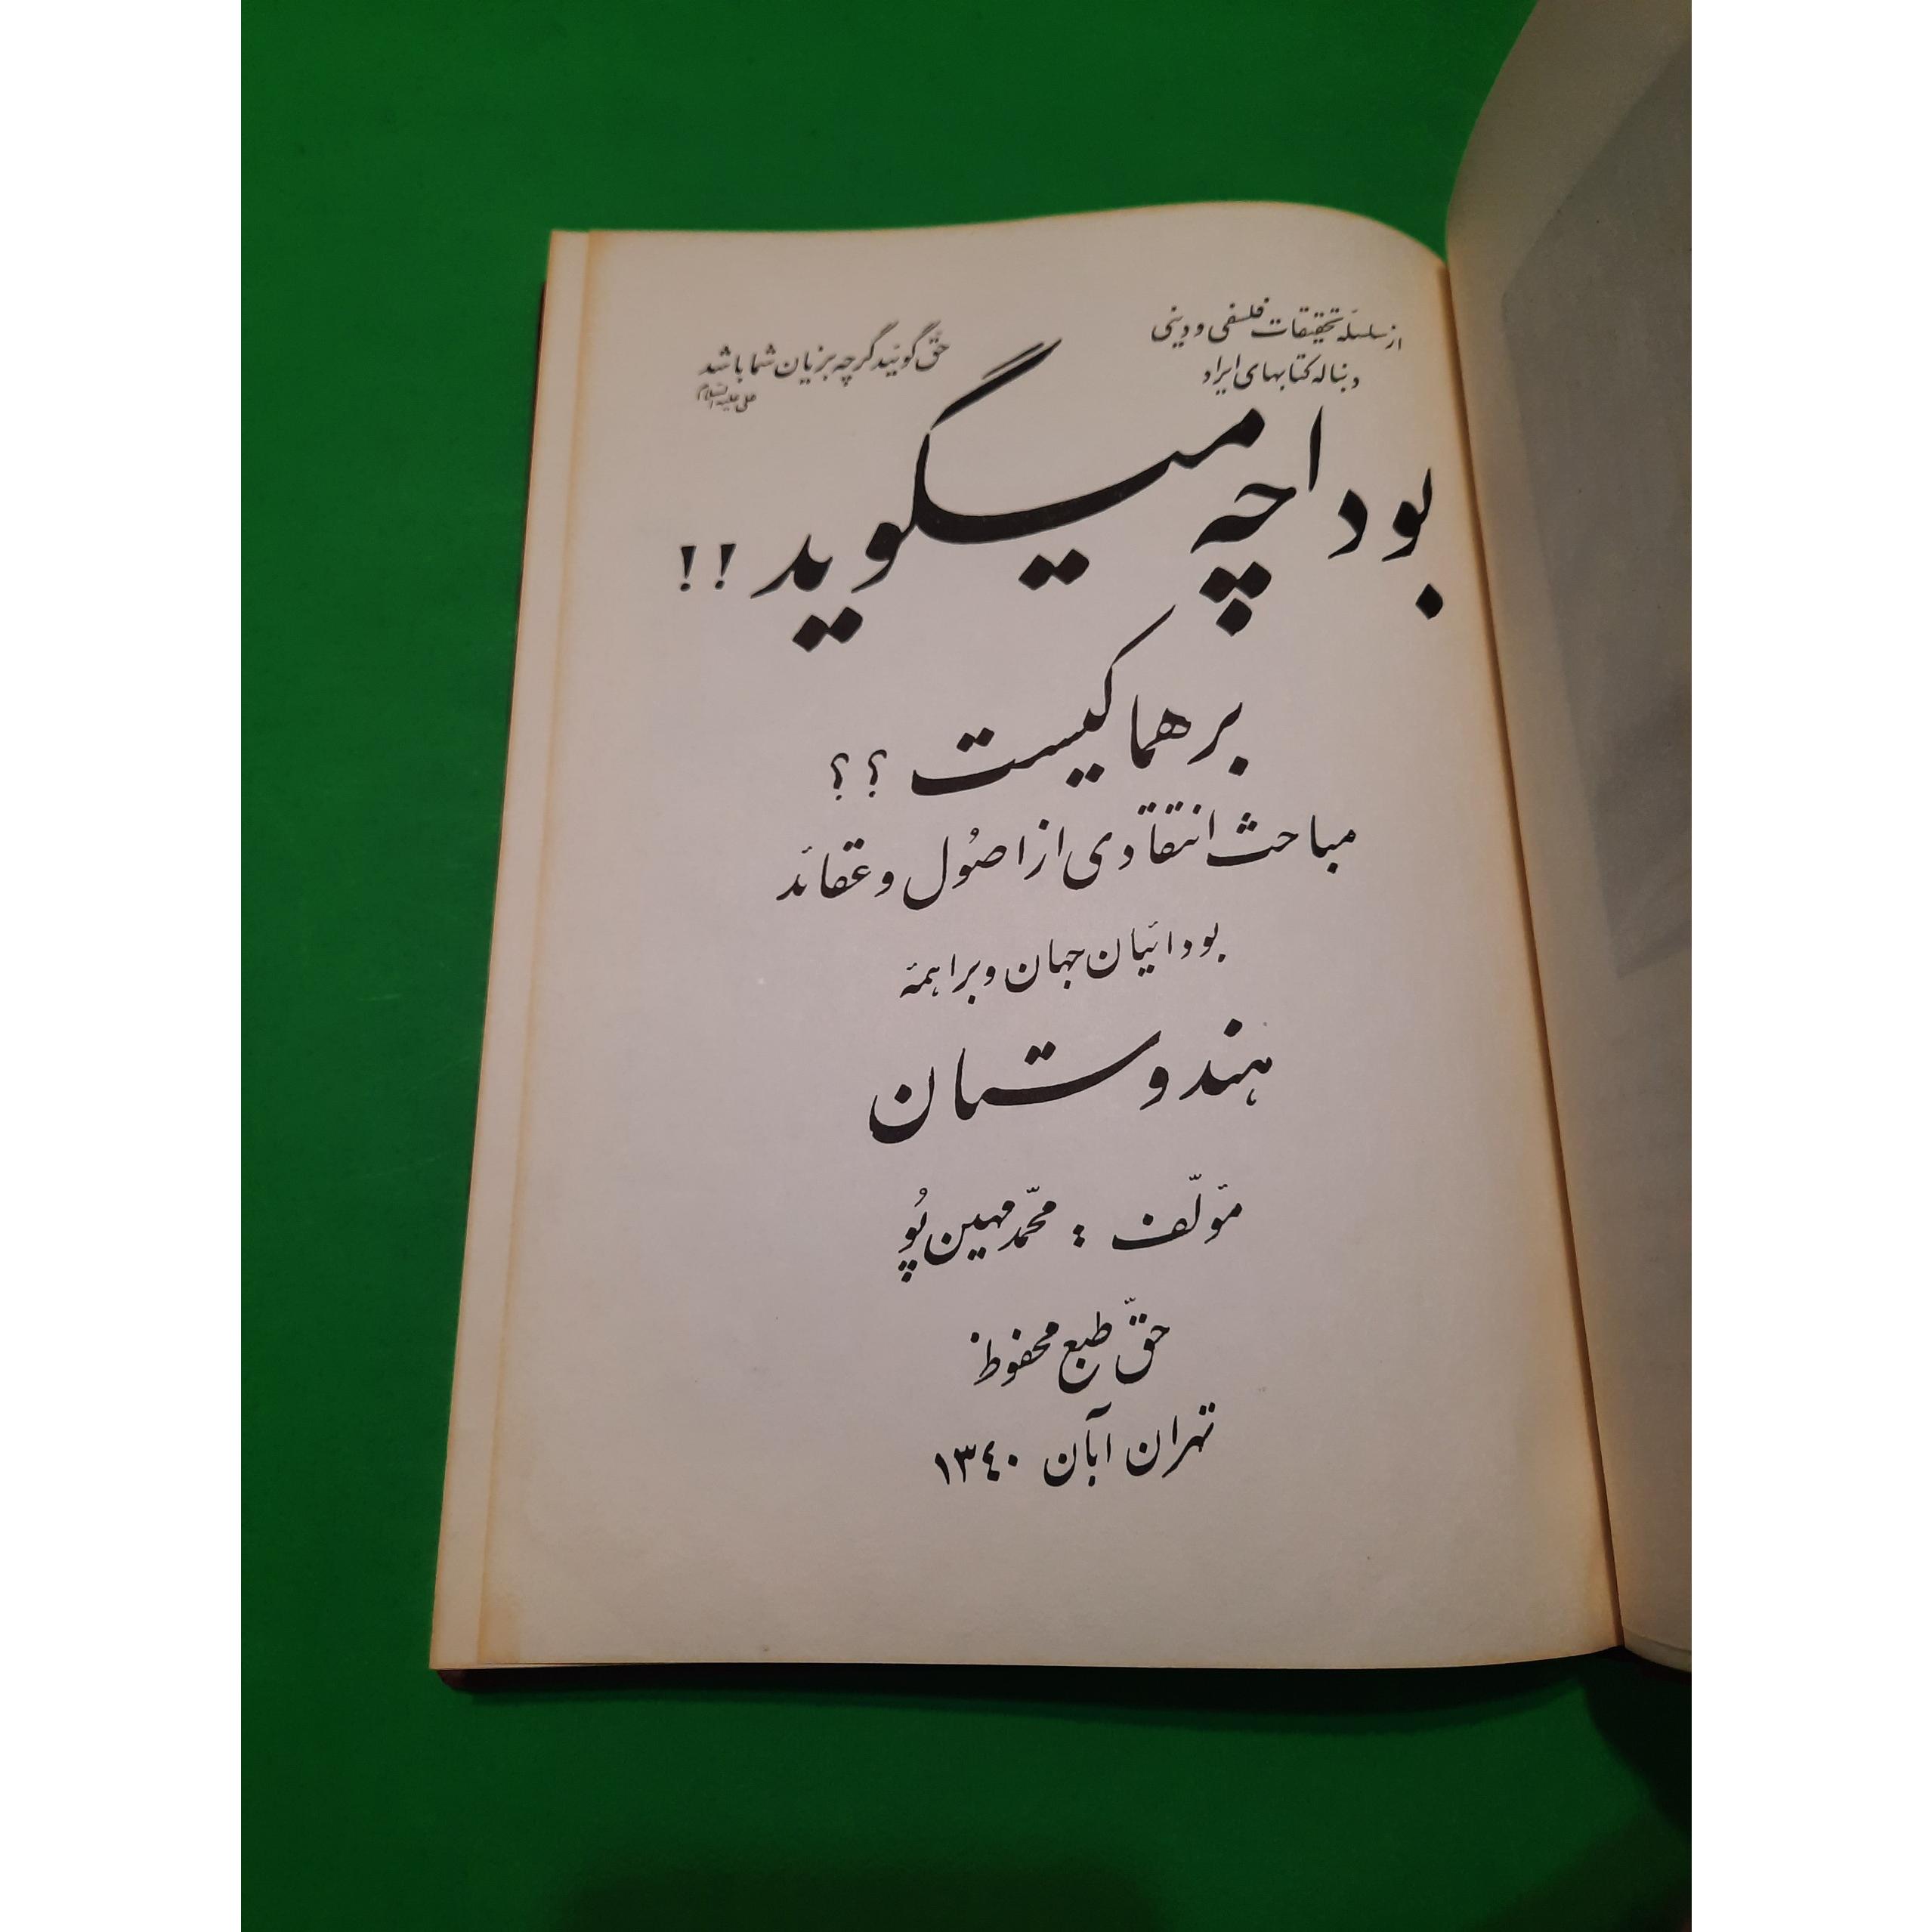 از سلسله تحقیقات فلسفی و دینی
دنباله کتابهای ایراد
حقّ گوئید گرچه بزیان شما باشد
علی علیه السلام
بودا چه میگوید !!
برهما کیست ؟؟
مباحث انتقادی از اصُول و عقائد
بودائیان جهان و براهمهٔ
هندوستان
مؤلّف : محمّد مهین پُو
حقّ طبع محفوظ
تهران آبان ۱۳٤۰